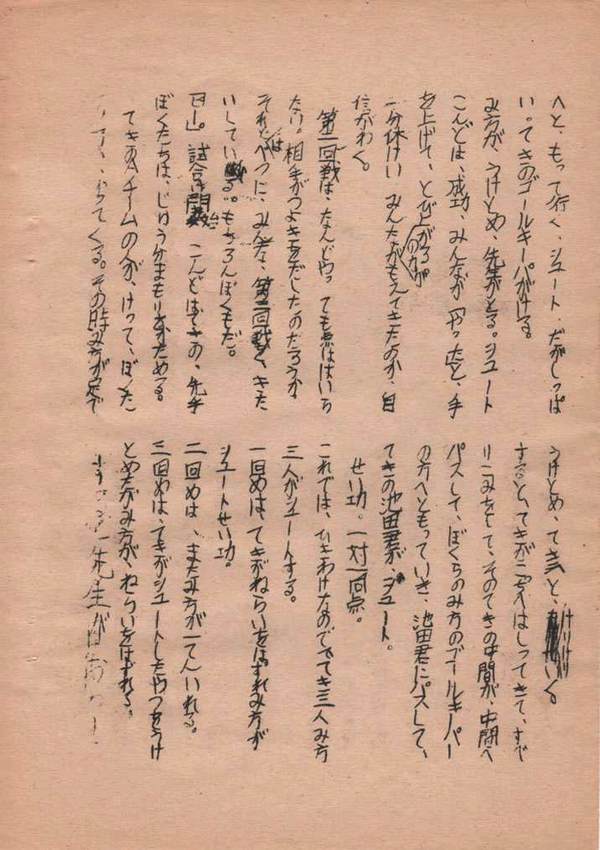 へと、もって行く、シュート、だがしっぱ
い。てきのゴールキーパがける
み方が、うけとめ、先生がとる。シュート
こんどは、成功、みんなが「やった」と、手
を上げて、とび上がる。
一分休けい みんな
信がわく。
第二回戦は、なんどやっても点ははいら
ない。相手がつよきをだしたのだろうか
それとはべつに、みんな、第二回戦を、きた
いしている。もちろんぼくもだ。
「ピー」。試合開始 こんどはてきの、先手
ぼくたちは、じゅう分まもりをかためる。
てきのAチームの人が、けって、ぼくた
ってくる。その時み方が足で
うけとめ、てきへと、けりけり いく。
すると、てきが二人はしってきて、すべ
りこみをして、そのてきの中間が、中間へ
パスして、ぼくらのみ方のゴールキーパー
の方へともっていき、池田君にパスして、
てきの池田君が、シュート。
せい功。一対一同点。
これでは、ひきわけなのでてき三人み方
三人がシュートする。
一回めは、てきがねらいをはずれみ方が
シュートせい功。
二回めは、またみ方が一てんいれる。
三回めは、てきがシュートしたやつをうけ
とめたがみ方が、ねらいをはずれる。
先生が